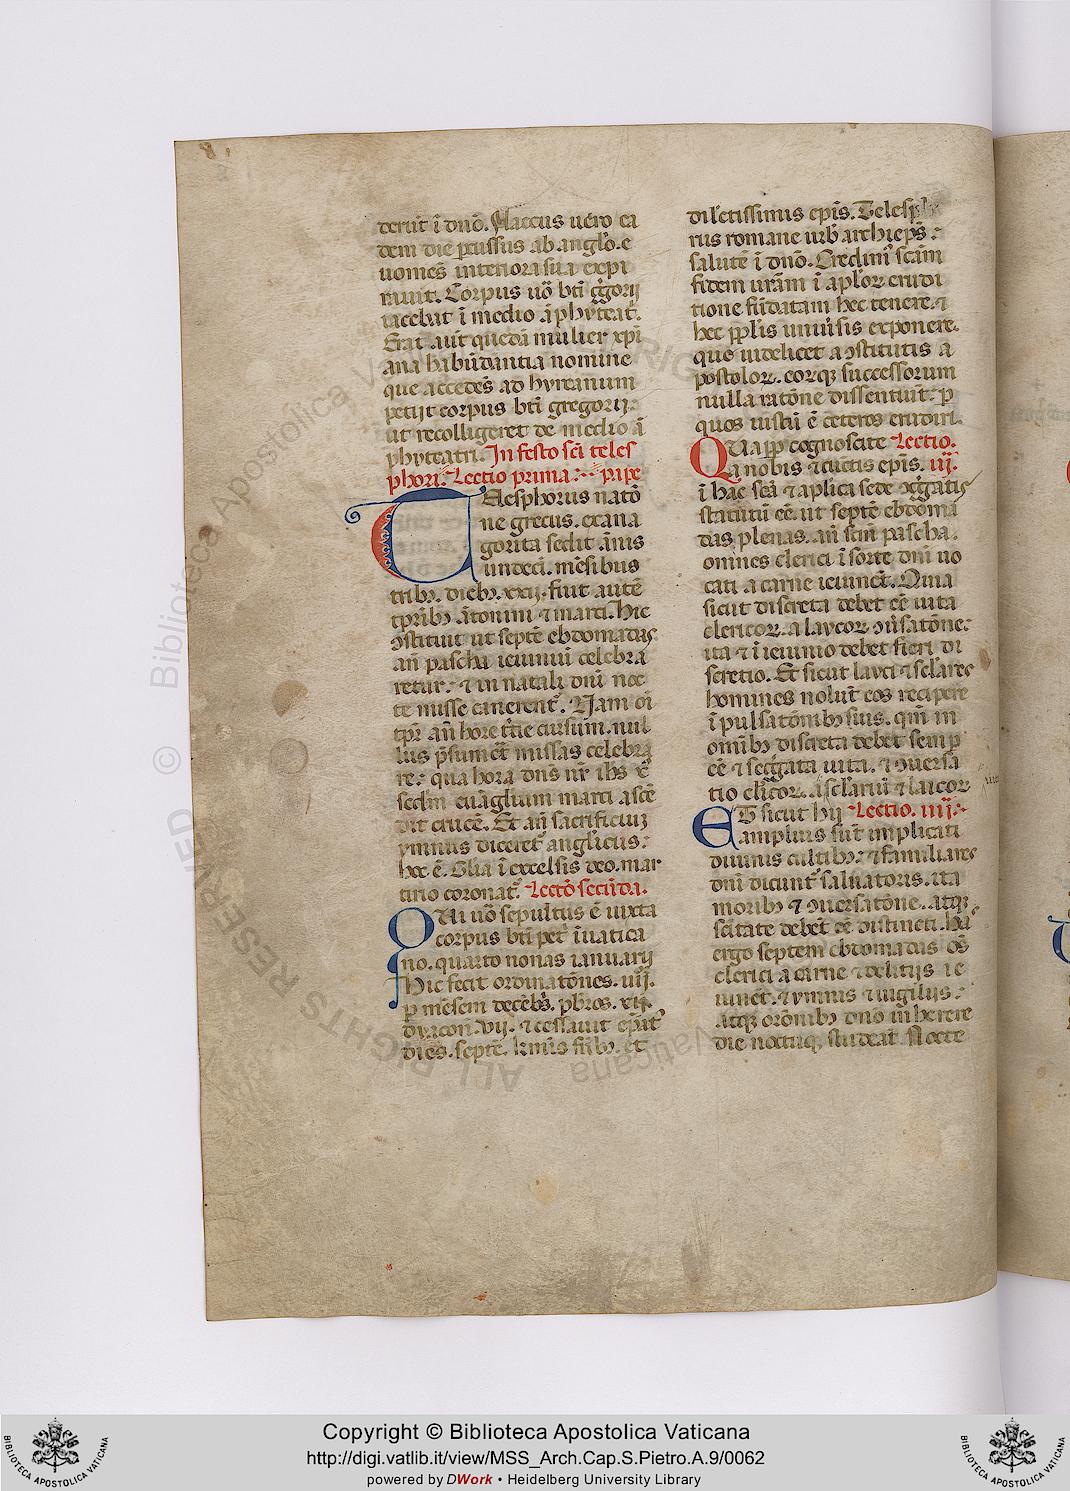 derūt ī dnō. Flaccus uero ea
dem die pcussus ab anglo. e
uomēs interiora sua expi
rauit. Corpus uō bti ḡgorij
iacebat ī medio āphyteat̄.
Erat aut̄ quedā mulier xpi
ana habūdantia nomine
que accedēs ad hyrcanum
petijt corpus bti gregorij.
ut recolligeret de medio ā
phyteatri. In festo scī teles
phori. Lectio prima. pape
Telesphorus natō
ne grecus. ex ana
gorita sedit ānis
undeci. mēsibus
tribꝫ. diebꝫ. xxij. fuit autē
tpribꝫ ātonini ⁊ marci. Hic
ꝯstituit ut septē ebdomadas
an̄ pascha ieiuniū celebra
retur. ⁊ in natali dnī noc
te misse canerent̄. Nam oī
tpr̄ an̄ hore tc̄ie cursum. nul
lus p̄sumēt missas celebra
re. qua hora dn̄s nr̄ ih̄s xc̄
scdm̄ euāgliū marci ascē
dit crucē. Et an̄ sacrificiuꝫ
ymnus diceret̄ anglicus.
hec ē. Glia ī excelsis deo. mar
tirio coronat̄. Lectō secūda.
Qui uō sepultus ē iuxta
corpus bti pet̄ ī uatica
no. quarto nonas ianuarij
Hic fecit ordinatōnes. iiij.
p mēsem decēbr̄. pbros. xij.
diacon̄. viij. ⁊ cessauit ep̄at̄
diēs. septē. kmīs frībꝫ. et
dilectissimis ep̄is. Telesph
rus romane urb̄ archiep̄s.
salutē ī dnō. Credim̄ scām
fidem urām ī aplōꝝ erudi
tione fūdatam hec tenere. ⁊
hec pplis uniūsis exponere.
que uidelicet a ꝯstitutis a
postoloꝝ. eorꝫ successorum
nulla ratōne dissentiūt. p
quos iustū ē ceteros erudiri.
Qua ꝓp cognoscite Lectio.
a nobis ⁊ cūctis ep̄is. iij.
ī hac scā ⁊ aplica sede ꝯḡgatis
statutū eē. ut septē ebdoma
das plenas. an̄ scm̄ pascha.
omnes clerici ī sorte dnī uo
cati a carne ieiunēt. Quia
sicut discreta debet eē uita
clericoꝝ. a laycoꝝ ꝯūsatōne.
ita ⁊ ī ieiunio debet fieri di
scretio. Et sicut layci ⁊ sclares
homines nolūt eos recipere
ī pulsatōnibꝫ suis. qm̄ in
omībꝫ discreta debet semp
eē ⁊ seḡgata uita. ⁊ ꝯūersa
tio clīcoꝝ. a sclariū ⁊ laicoꝝ
Et sicut hij Lectio. iiij.
amplius sūt implicati
diuinis cultibꝫ. ⁊ familiares
dnī dicunt̄ saluatoris. ita
moribꝫ ⁊ ꝯuersatōne. atqꝫ
scītate debēt eē distincti. Hā
ergo septem ebdomadas oēs
clerici a carne ⁊ delitijs ie
iunēt. ⁊ ymnis ⁊ uigilijs.
atqꝫ orōnibꝫ dnō inherere
die noctuqꝫ studeāt. Nocte
Copyright © Biblioteca Apostolica Vaticana
http://digi.vatlib.it/view/MSS_Arch.Cap.S.Pietro.A.9/0062
powered by DWork • Heidelberg University Library
BIBLIOTECA APOSTOLICA VATICANA
BIBLIOTECA APOSTOLICA VATICANA
© Biblioteca Apostolica Vaticana
ALL RIGHTS RESERVED